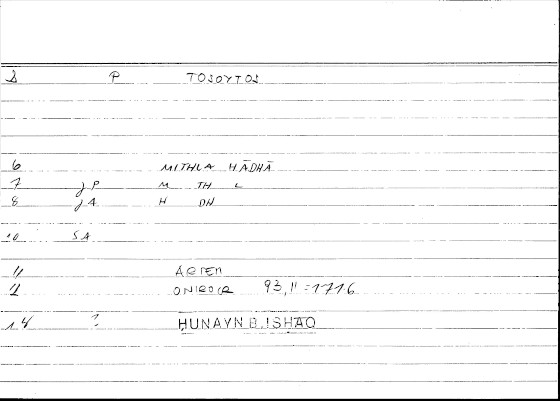 2 P TOSOYTOS
6 MITHLA HĀDHĀ
7 jP M TH L
8 jA H DH
10 SA
11 ARTEM
ONIROCR 93,11=1716
14 ? HUNAYN B. ISHAQ